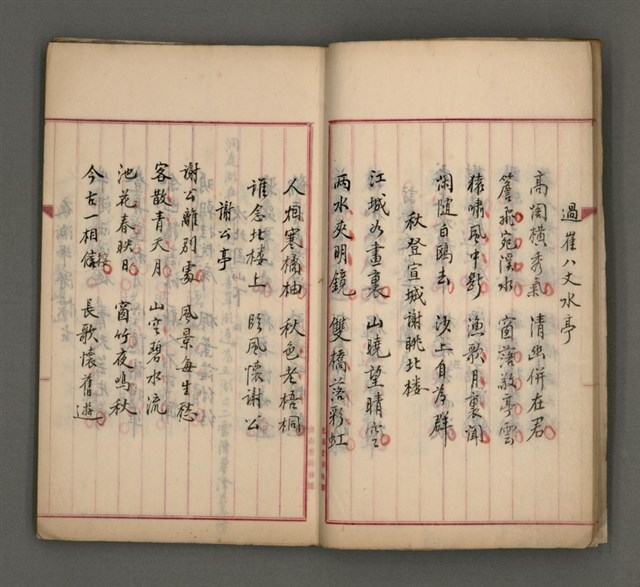 過崔八丈水亭
高閣橫秀氣 清幽併在君
簷飛宛溪水 窗落敬亭雲
猿嘯風中斷 漁歌月裏聞
閑隨白鷗去 沙上自為群
秋登宣城謝眺北楼
江城如畫裏 山曉望晴空
两水夾明鏡 雙橋落彩虹
人烟寒橘柚 秋色老梧桐
誰念北楼上 臨風懷謝公
謝公亭
謝公離別處 風景每生愁
客散青天月 山空碧水流
池花春映日 窗竹夜鳴秋
今古一相接 長歌懷舊遊